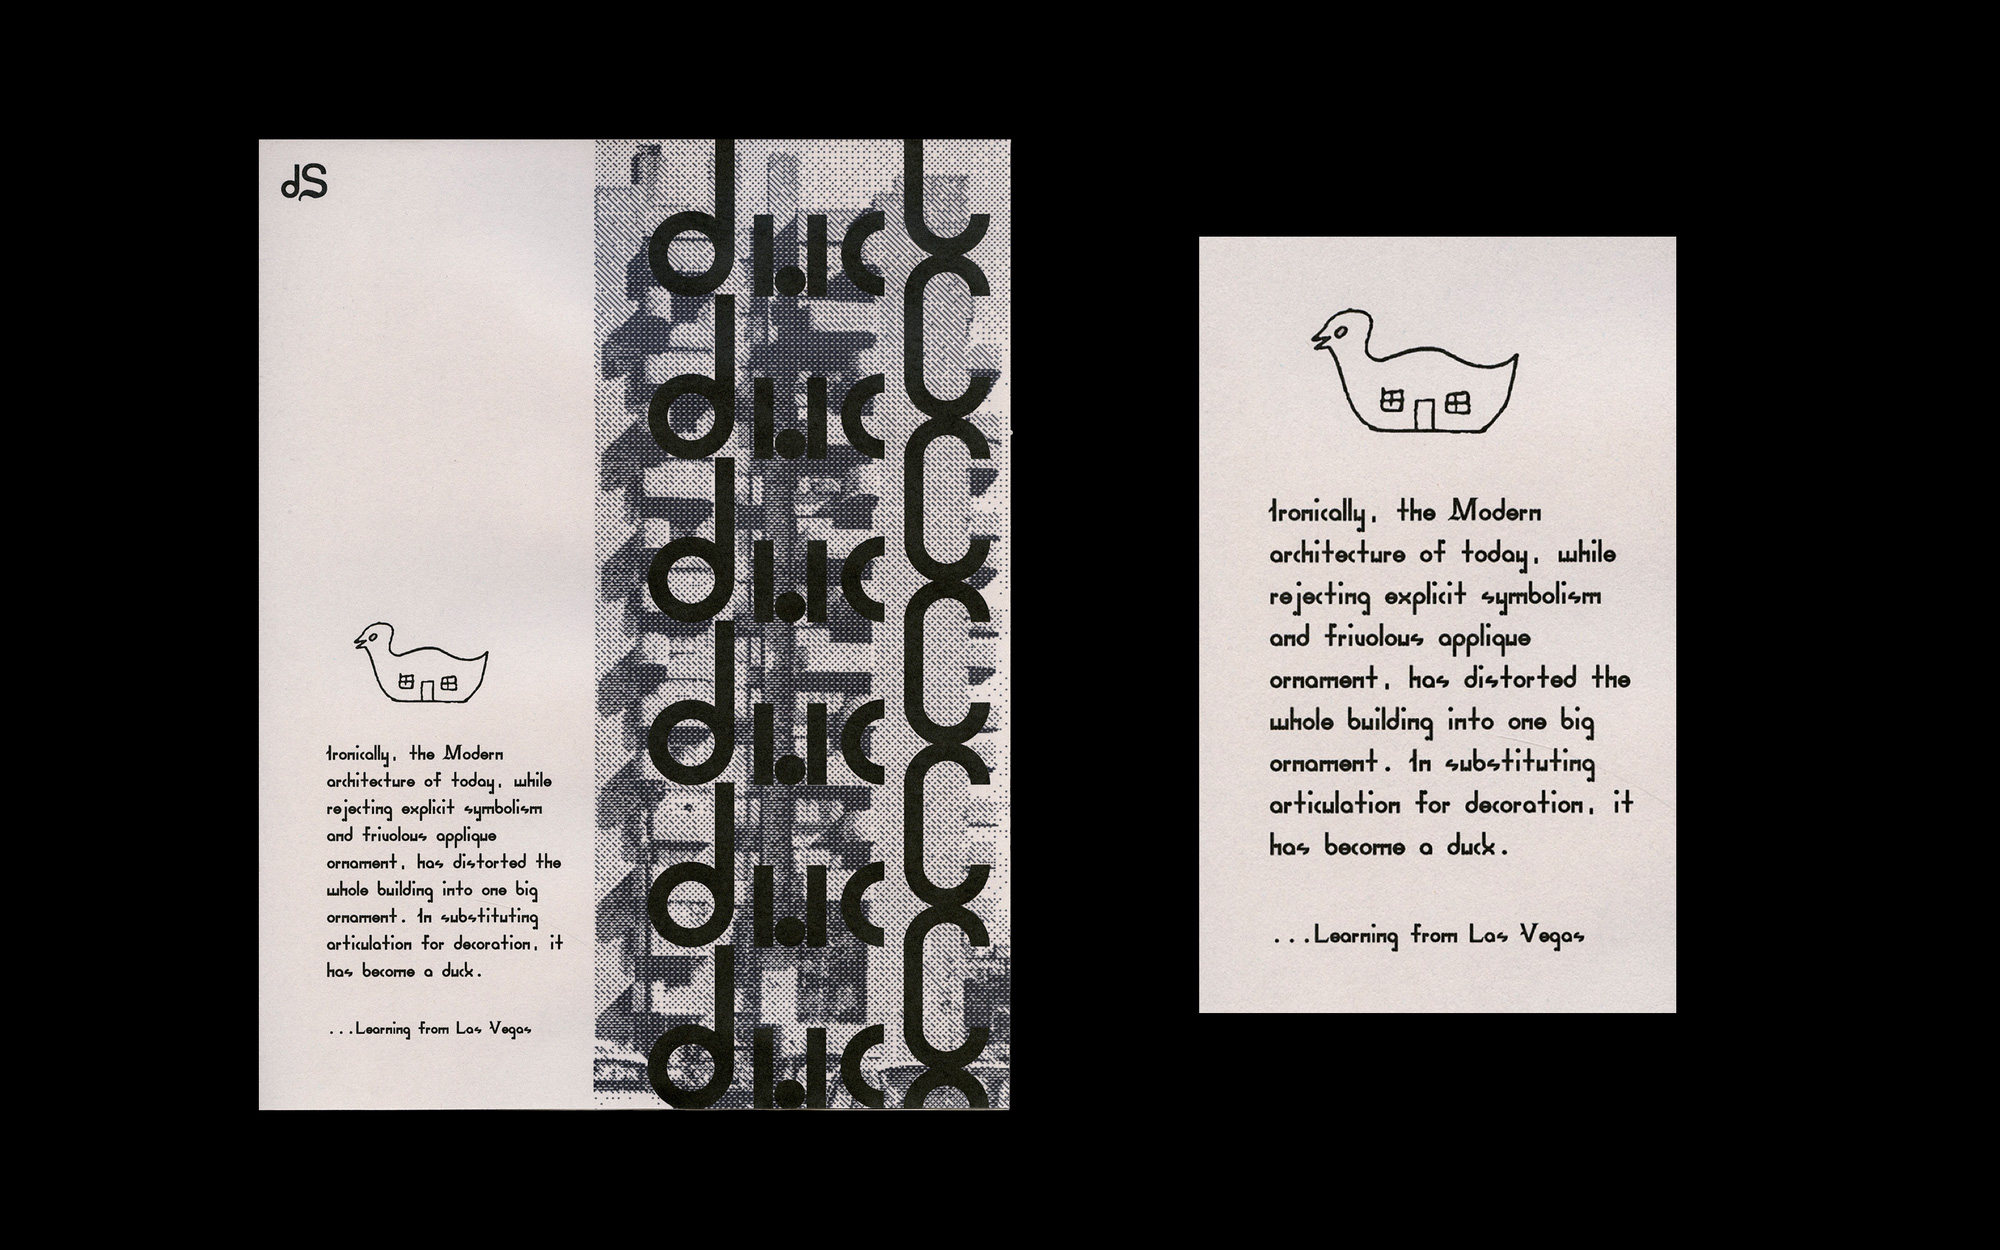 dS
Ironically, the Modern
architecture of today, while
rejecting explicit symbolism
and frivolous applique
ornament, has distorted the
whole building into one big
ornament. In substituting
articulation for decoration, it
has become a duck.
...Learning from Las Vegas
duck
duck
duck
duck
duck
duck
Ironically, the Modern
architecture of today, while
rejecting explicit symbolism
and frivolous applique
ornament, has distorted the
whole building into one big
ornament. In substituting
articulation for decoration, it
has become a duck.
...Learning from Las Vegas